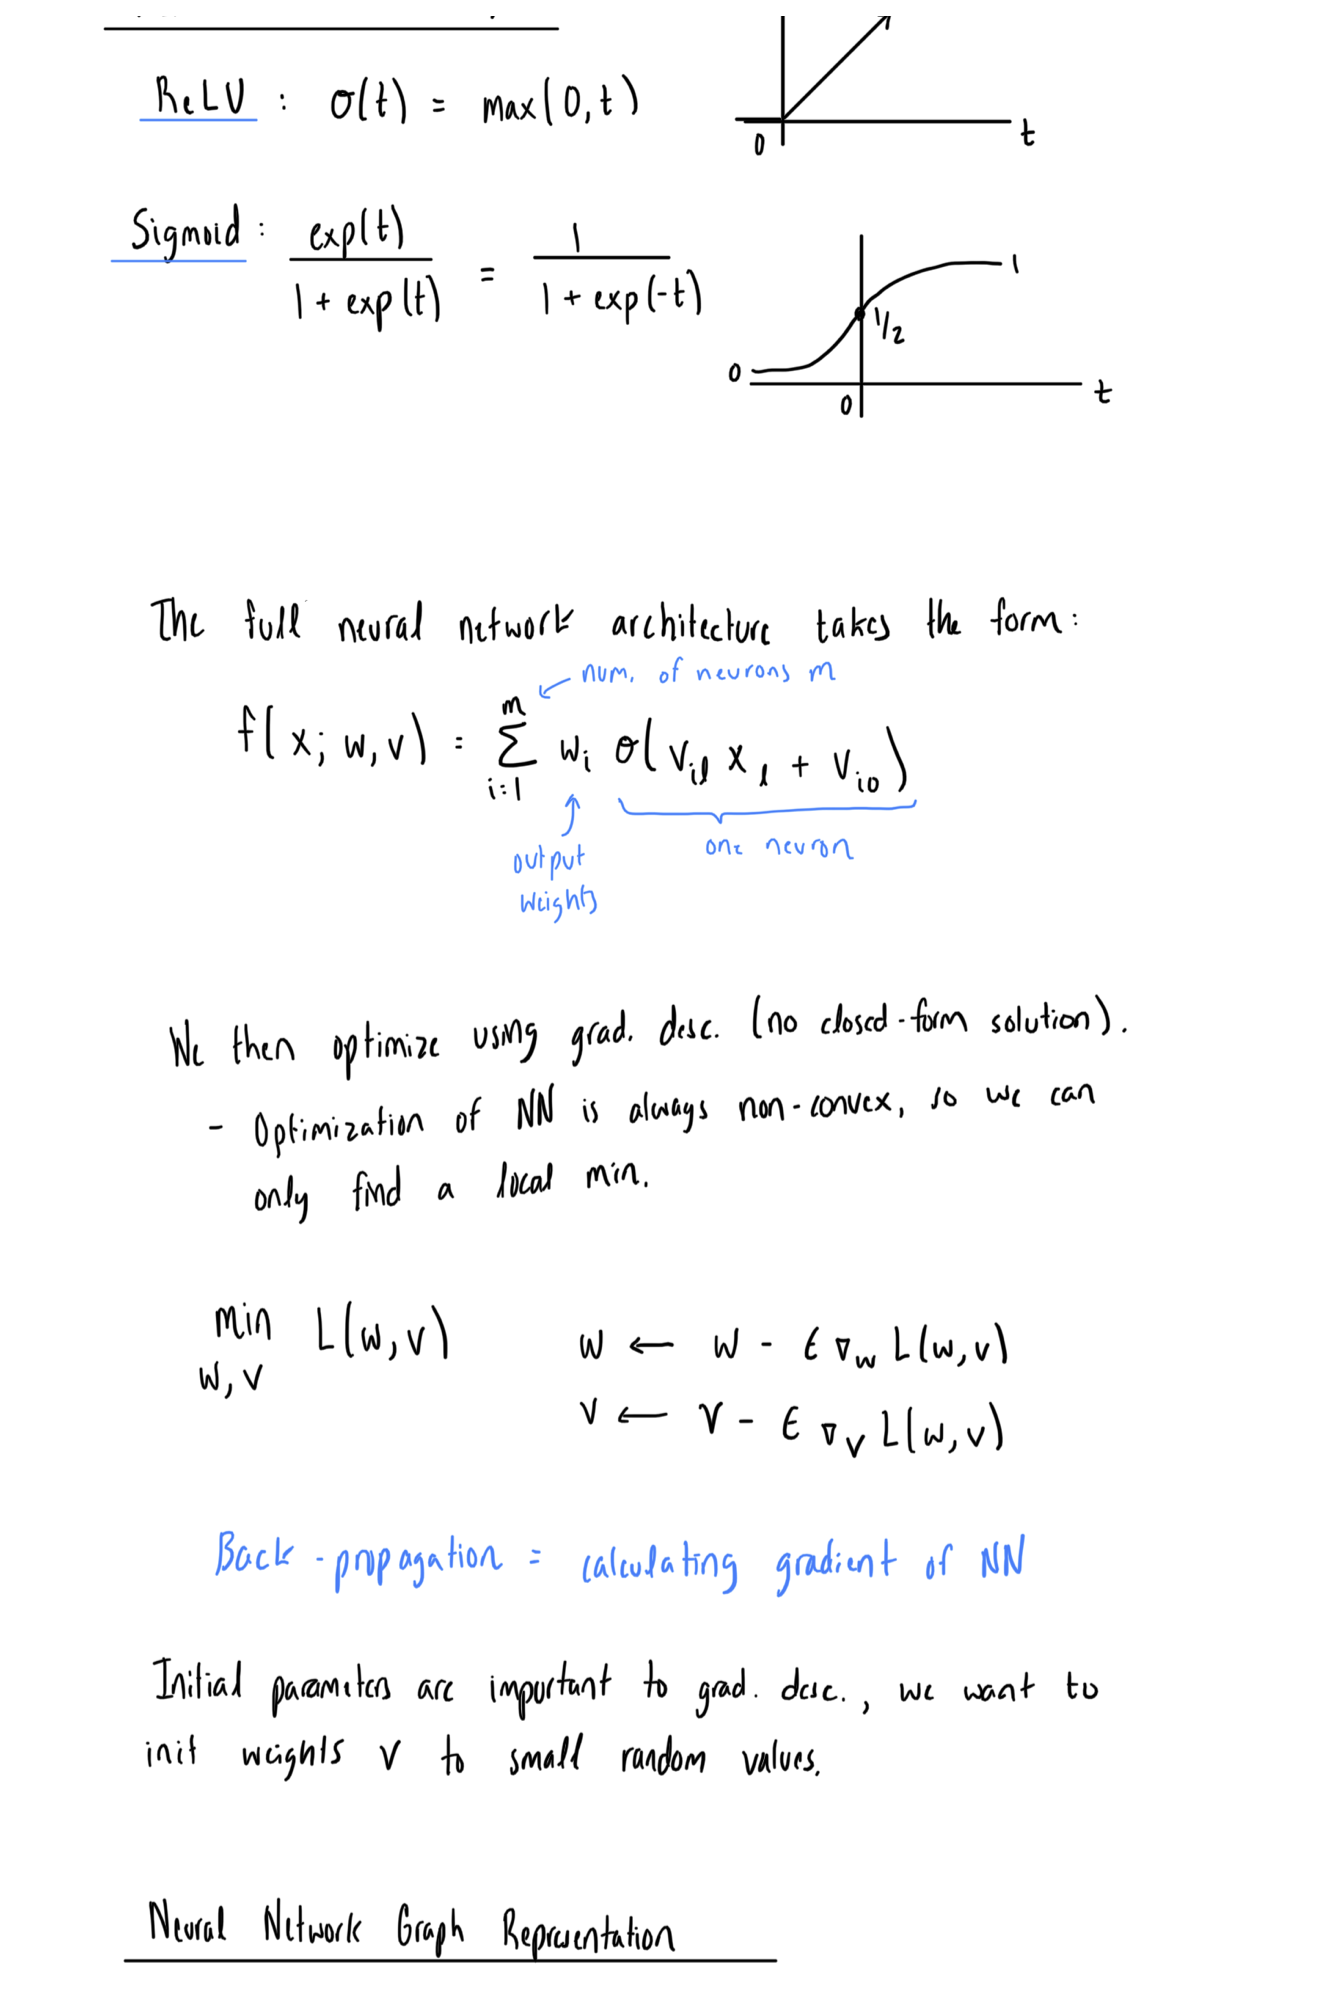 ReLU : σ(t) = max(0,t)
0 t
Sigmoid: exp(t) / 1 + exp(t) = 1 / 1 + exp(-t)
1
1/2
0
0 t
The full neural network architecture takes the form:
num. of neurons m
f(x; w,v) = Σ_{i=1}^{m} w_i σ(v_{i1} x_1 + v_{i0})
one neuron
output
weights
We then optimize using grad. desc. (no closed-form solution).
- Optimization of NN is always non-convex, so we can
only find a local min.
min_{w,v} L(w,v)
w ← w - ε ∇_w L(w,v)
v ← v - ε ∇_v L(w,v)
Back-propagation = calculating gradient of NN
Initial parameters are important to grad. desc., we want to
init weights v to small random values.
Neural Network Graph Representation